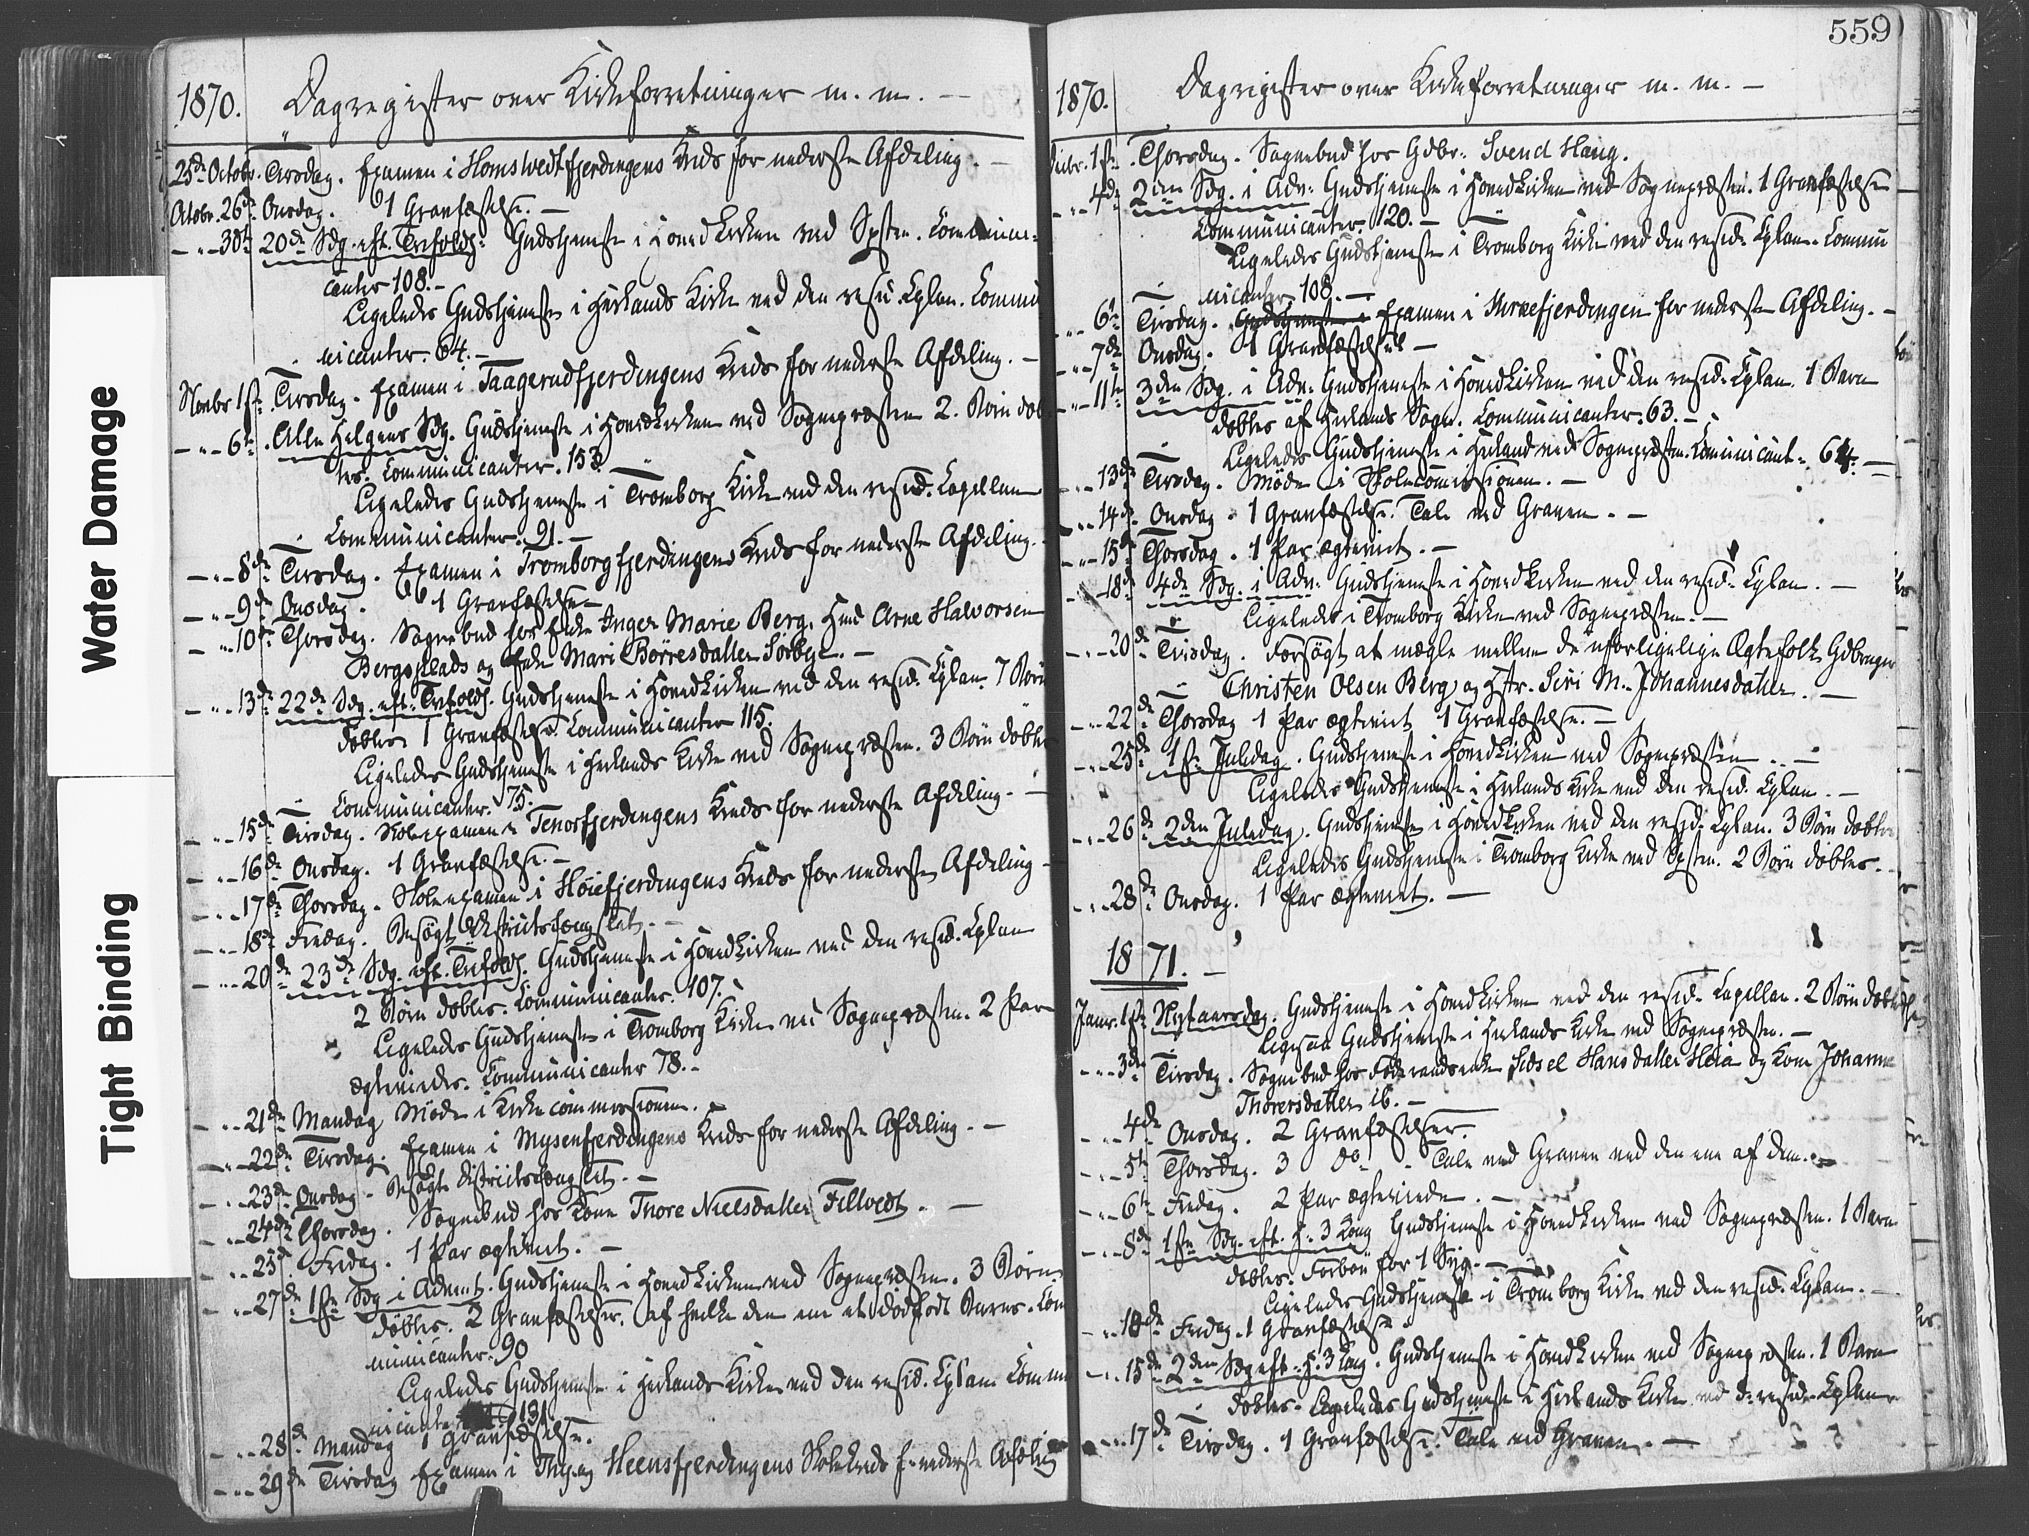 1870. Dagregister over Kirkeforretninger m. m. —
25de Octobr. Tirsdag. Examen i Homstvedtfjerdingens Kreds for nederste Afdeling. —
Octobr. 26de Onsdag. 1 Gravfæstelse. —
— „ — 30te 20de Sdg. eft. Trefoldh: Gudstjeneste i Hovedkirken ved Spsten. Commu-
canter 108. —
Ligeledes Gudstjeneste i Herlands Kirke ved den resid. Cplan. Commu
nicanter. 64. —
Novbr 1ste Tirsdag. Examen i Taagerudfjerdingens Kreds for nederste Afdeling. —
— „ — 6te Alle Helgens Sdg. Gudstjeneste i Hovedkirken ved Sognepræsten 2. Børn døb
tes. Communicanter. 153
Ligeledes Gudstjeneste i Tromborg Kirke ved den resid. Capellan
Communicanter. 91. —
— „ — 8de Tirsdag. Examen i Tromborgfjerdingens Kreds for nederste Afdeling.
— „ — 9de Onsdag. 1 Gravfæstelse
— „ — 10de Thorsdag. Sognebud hos Enke Inger Marie Berg. Hmd Arne Halvorsen
Bergsplads og Enke Mari Børresdatter Sørbye. —
— „ — 13de 22de Sdg. eft. Trefoldh. Gudstjeneste i Hovedkirken ved den resid. Cplan. 7 Børn
døbtes 1 Gravfæstelse. Communicanter 115.
Ligeledes Gudstjeneste i Herlands Kirke ved Sognepræsten. 3 Børn døbtes
Communicanter. 75.
— „ — 15de Tirsdag. Skoleexamen i Tenorfjerdingens Kreds for nederste Afdeling. —
— „ — 16de Onsdag. 1 Gravfæstelse. —
— „ — 17de Thorsdag. Skoleexamen i Høiefjerdingens Kreds for nederste Afdeling —
— „ — 18de Fredag. Besøgt Districtsfængslet. —
— „ — 20de 23de Sdg. eft. Trefoldh. Gudstjeneste i Hovedkirken ved den resid. Cplan
2 Børn døbtes. Communicanter. 107.
Ligeledes Gudstjeneste i Tromborg Kirke ved Sognepræsten. 2 Par
ægteviedes. Communicanter 78. —
— „ — 21de Mandag Møde i Kirkecommissionen. —
— „ — 22de Tirsdag. Examen i Mysenfjerdingens Kreds for nederste Afdeling. —
— „ — 23de Onsdag. Besøgte Districtsfængslet. —
— „ — 24de Thorsdag. Sognebud hos Kone Thore Nielsdatter Fillvedt. —
— „ — 25de Fredag. 1 Par ægteviet. —
— „ — 27de 1ste Sdg i Advent. Gudstjeneste i Hovedkirken ved Sognepræsten. 3 Børn
døbtes. 2 Gravfæstelser. af hvilke den ene et dødfødt Barns. Com
municanter. 90
Ligeledes Gudstjeneste i Herlands Kirke ved den resid. Cplan Commu
nicanter 131
— „ — 28de Mandag 1 Gravfæstelse.
— „ — 29de Tirsdag Examen i Heensfjerdingens Skolekreds f. nederste Afdeling
559
1870. Dagregister over Kirkeforretninger m. m. —
Decbr. 1ste Thorsdag. Sognebud hos Gdbr: Svend Haug.
— „ — 4de 2den Sdg. i Adv: Gudstjeneste i Hovedkirken ved Sognepræsten. 1 Gravfæstelse
Communicanter. 120. —
Ligeledes Gudstjeneste i Tromborg Kirke ved den resid. Cplan. Commu
nicanter. 108. —
— „ — 6te Tirsdag. Gudstjeneste i Examen i fjerdingen for nederste Afdeling. —
— „ — 7de Onsdag. 1 Gravfæstelse —
— „ — 11te 3den Sdg. i Adv: Gudstjeneste i Hovedkirken ved den resid. Cplan. 1 Barn
døbtes af Herlands Sogn. Communicanter. 63. —
Ligeledes Gudstjeneste i Herland ved Sognepræsten. Communicant: 64. —
— „ — 13de Tirsdag. Møde i Skolecomissionen. —
— „ — 14de Onsdag. 1 Gravfæstelse. Tale ved Graven. —
— „ — 15de Thorsdag. 1 Par ægteviet. —
— „ — 18de 4de Sdg. i Adv: Gudstjeneste i Hovedkirken ved den resid. Cplan. —
Ligeledes i Tromborg Kirke ved Sognepræsten. —
— „ — 20de Tirsdag. Forsøgt at mægle mellem de uforligelige Ægtefolk Gdbruger
Christen Olsen Berg og Hstr. Siri M. Johannesdatter. —
— „ — 22de Thorsdag 1 Par ægteviet 1 Gravfæstelse. —
— „ — 25de 1ste Juledag. Gudstjeneste i Hovedkirken ved Sognepræsten. —
Ligeledes Gudstjeneste i Herlands Kirke ved den resid. Cplan. —
— „ — 26de 2den Juledag. Gudstjeneste i Hovedkirken ved den resid. Cplan. 3 Børn døbtes
Ligeledes Gudstjeneste i Tromborg Kirke ved Spsten. 2 Børn døbtes. —
— „ — 28de Onsdag. 1 Par ægteviet. —
1871. —
Janr. 1ste Nytaarsdag. Gudstjeneste i Hovedkirken ved den resid. Capellan. 2 Børn døbtes
Ligesaa Gudstjeneste i Herlands Kirke ved Sognepræsten. —
— „ — 3de Tirsdag. Sognebud hos Føderaadsenke Sidsel Hansdatter Heia og Kone Johanne
Thorersdatter ib. —
— „ — 4de Onsdag. 2 Gravfæstelser.
— „ — 5te Thorsdag. 3 do — Tale ved Graven ved den ene af dem. —
— „ — 6te Fredag. 2 Par ægteviede. —
— „ — 8de 1ste Sdg. eft. H. 3 Kong Gudstjeneste i Hovedkirken ved Sognepræsten. 1 Barn
døbtes. Forbøn for 1 Syg. —
Ligeledes Gudstjeneste i Tromborg Kirke ved den resid. Cplan. —
Fredag. 1 Gravfæstelse
— „ — 15de 2den Sdg eft. H. 3 Kong. Gudstjeneste i Hovedkirken ved Sognepræsten. 1 Barn
døbtes. Ligeledes Gudstjeneste i Herlands Kirke ved d. resid. Cplan
— „ — 17de Tirsdag. 1 Gravfæstelse. Tale ved Graven. —
Water Damage
Tight Binding